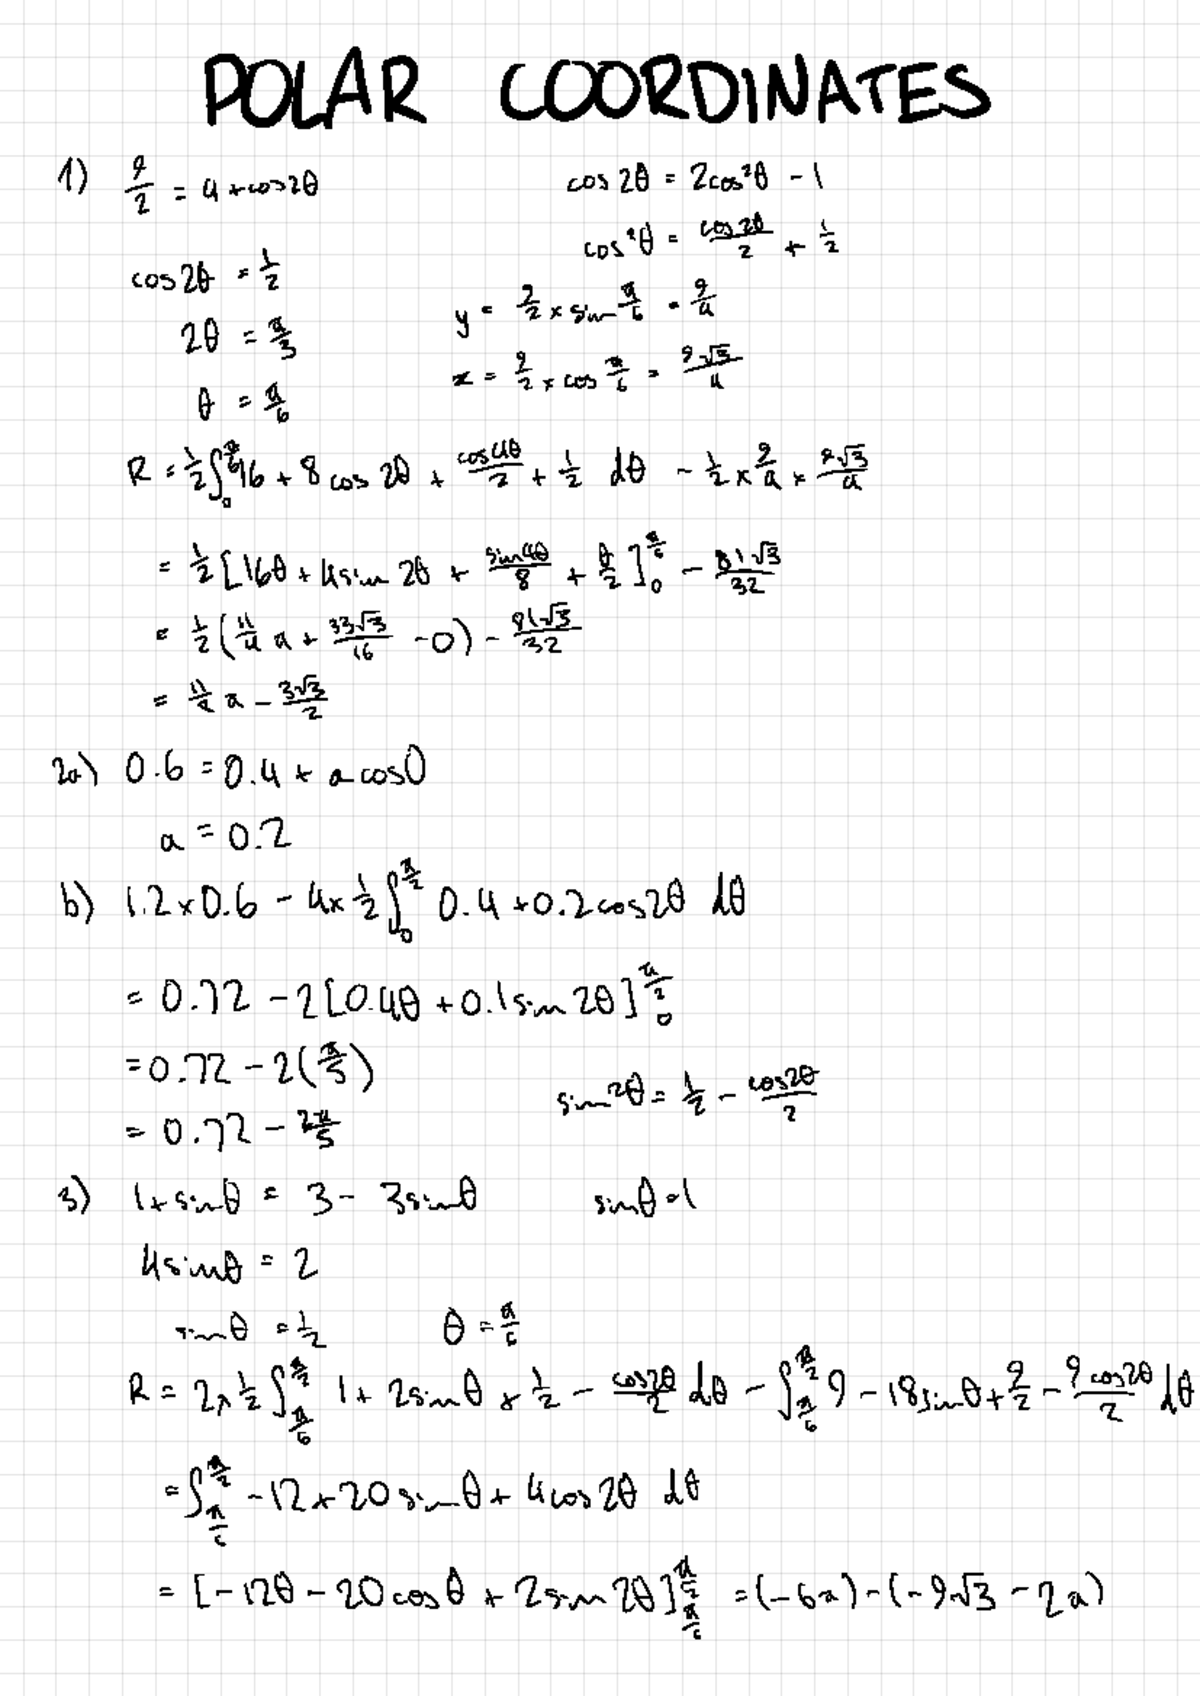 POLAR COORDINATES
1) 9/2 = 4 + cos2θ
cos 2θ = 2cos²θ - 1
cos²θ = cos 2θ/2 + 1/2
cos2θ = 1/2
2θ = π/3
θ = π/6
y = 9/2 × sin π/6 = 9/4
x = 9/2 × cos π/6 = 9√3/4
R = 1/2 ∫₀^(π/6) 16 + 8 cos 2θ + cos4θ/2 + 1/2 dθ - 1/2 × 9/4 × 9√3/4
= 1/2 [16θ + 4sin 2θ + sin4θ/8 + θ/2]₀^(π/6) - 81√3/32
= 1/2 (11/4 π + 33√3/16 - 0) - 81√3/32
= 11/8 π - 3√3/2
2a) 0.6 = 0.4 + a cos0
a = 0.2
b) 1.2 × 0.6 - 4 × 1/2 ∫₀^(π/2) 0.4 + 0.2cos2θ dθ
= 0.72 - 2[0.4θ + 0.1sin 2θ]₀^(π/2)
= 0.72 - 2(π/5)
= 0.72 - 2π/5
sin²θ = 1/2 - cos2θ/2
3) 1 + sinθ = 3 - 3sinθ
sinθ = 1
4sinθ = 2
sinθ = 1/2
θ = π/6
R = 2 × 1/2 ∫_(π/6)^(π/2) 1 + 2sinθ + 1/2 - cos2θ/2 dθ - ∫_(π/6)^(π/2) 9 - 18sinθ + 9/2 - 9cos2θ/2 dθ
= ∫_(π/6)^(π/2) -12 + 20sinθ + 4cos2θ dθ
= [-12θ - 20cosθ + 2sin 2θ]_(π/6)^(π/2) = (-6π) - (-9√3 - 2π)